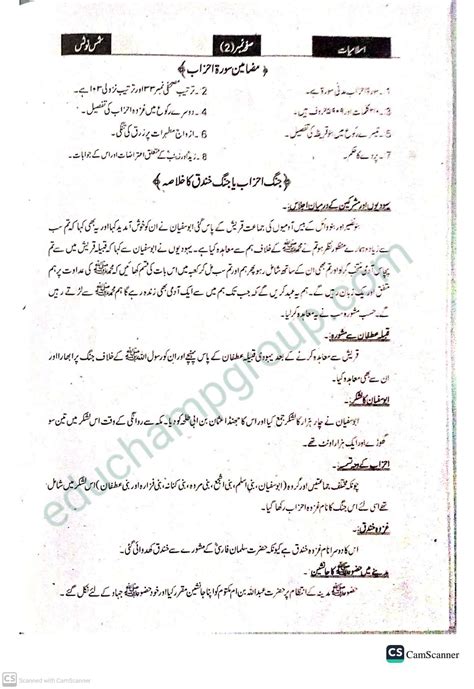 اسلامیات صفحہ نمبر (2) شمس نوٹس
﴿مضامین سورۃ احزاب﴾
1۔ سورۃ احزاب مدنی سورۃ ہے۔ 2۔ ترتیب مصحفی نمبر ۳۳ اور ترتیب نزولی ۱۰۳ ہے۔
3۔ کلمات اور حروف ہیں۔ 4۔ دوسرے رکوع میں غزوہ احزاب کی تفصیل۔
5۔ تیسرے رکوع میں بنو قریظہ کی تفصیل۔ 6۔ ازواج مطہرات پر رزق کی تنگی۔
7۔ پردے کا حکم۔ 8۔ زید اور زینب کے متعلق اعتراضات اور اس کے جوابات
﴿جنگ احزاب یا جنگ خندق کا خلاصہ﴾
یہودیوں اور مشرکین کے درمیان اجلاس:۔
بنو نضیر اور بنو وائل کے بیس آدمیوں کی جماعت قریش کے پاس گئی ابوسفیان نے ان کو خوش آمدید کہا اور یہ بھی کہا کہ تم سب
سے زیادہ ہمارے منظور نظر ہو تم نے محمد ﷺ کے خلاف ہم سے معاہدہ کیا۔ یہودیوں نے ابوسفیان سے کہا کہ قبیلہ قریش میں سے تم
پچاس آدمی منتخب کر لو اور تم بھی ان کے ساتھ شامل رہو پھر ہم اور تم سب مل کر کعبہ میں اس بات کی قسم کھائیں کہ محمد ﷺ کی عداوت پر ہم
متفق اور یک زبان رہیں گے۔ ہم یہ عہد کریں گے کہ جب تک ہم میں سے ایک آدمی بھی زندہ رہے گا ہم محمد ﷺ سے لڑتے رہیں
گے۔ حسب مشورہ سب نے یہ معاہدہ کر لیا۔
قبیلہ غطفان سے مشورہ:۔
قریش سے معاہدہ کرنے کے بعد یہودی قبیلہ غطفان کے پاس پہنچے اور ان کو رسول اللہ ﷺ کے خلاف جنگ پر ابھارا اور
ان سے بھی معاہدہ کیا۔
ابوسفیان کا لشکر:۔
ابوسفیان نے چار ہزار کا لشکر جمع کیا اور اس کا جھنڈا عثمان بن ابی طلحہ کو دیا۔ مکہ سے روانگی کے وقت اس لشکر میں تین سو
گھوڑے اور ایک ہزار اونٹ تھے۔
احزاب کے وجہ تسمیہ:۔
چونکہ مختلف جماعتیں اور گروہ (ابوسفیان، بنی اسلم، بنی اشجع، بنی مرہ، بنی کنانہ، بنی فزارہ اور بنی غطفان) اس لشکر میں شامل
تھے اسی لئے اس جنگ کا نام غزوہ احزاب رکھا گیا۔
غزوہ خندق:۔
اس کا دوسرا نام غزوہ خندق ہے کیونکہ حضرت سلمان فارسیؓ کے مشورے سے خندق کھدوائی گئی۔
مدینے میں حضور ﷺ کا جانشین:۔
حضور ﷺ مدینہ کے انتظام پر حضرت عبداللہ بن ام مکتوم کو اپنا جانشین مقرر کیا اور خود حضور ﷺ جہاد کے لئے نکل گئے۔
educhampgroup.com
CS CamScanner
CS Scanned with CamScanner